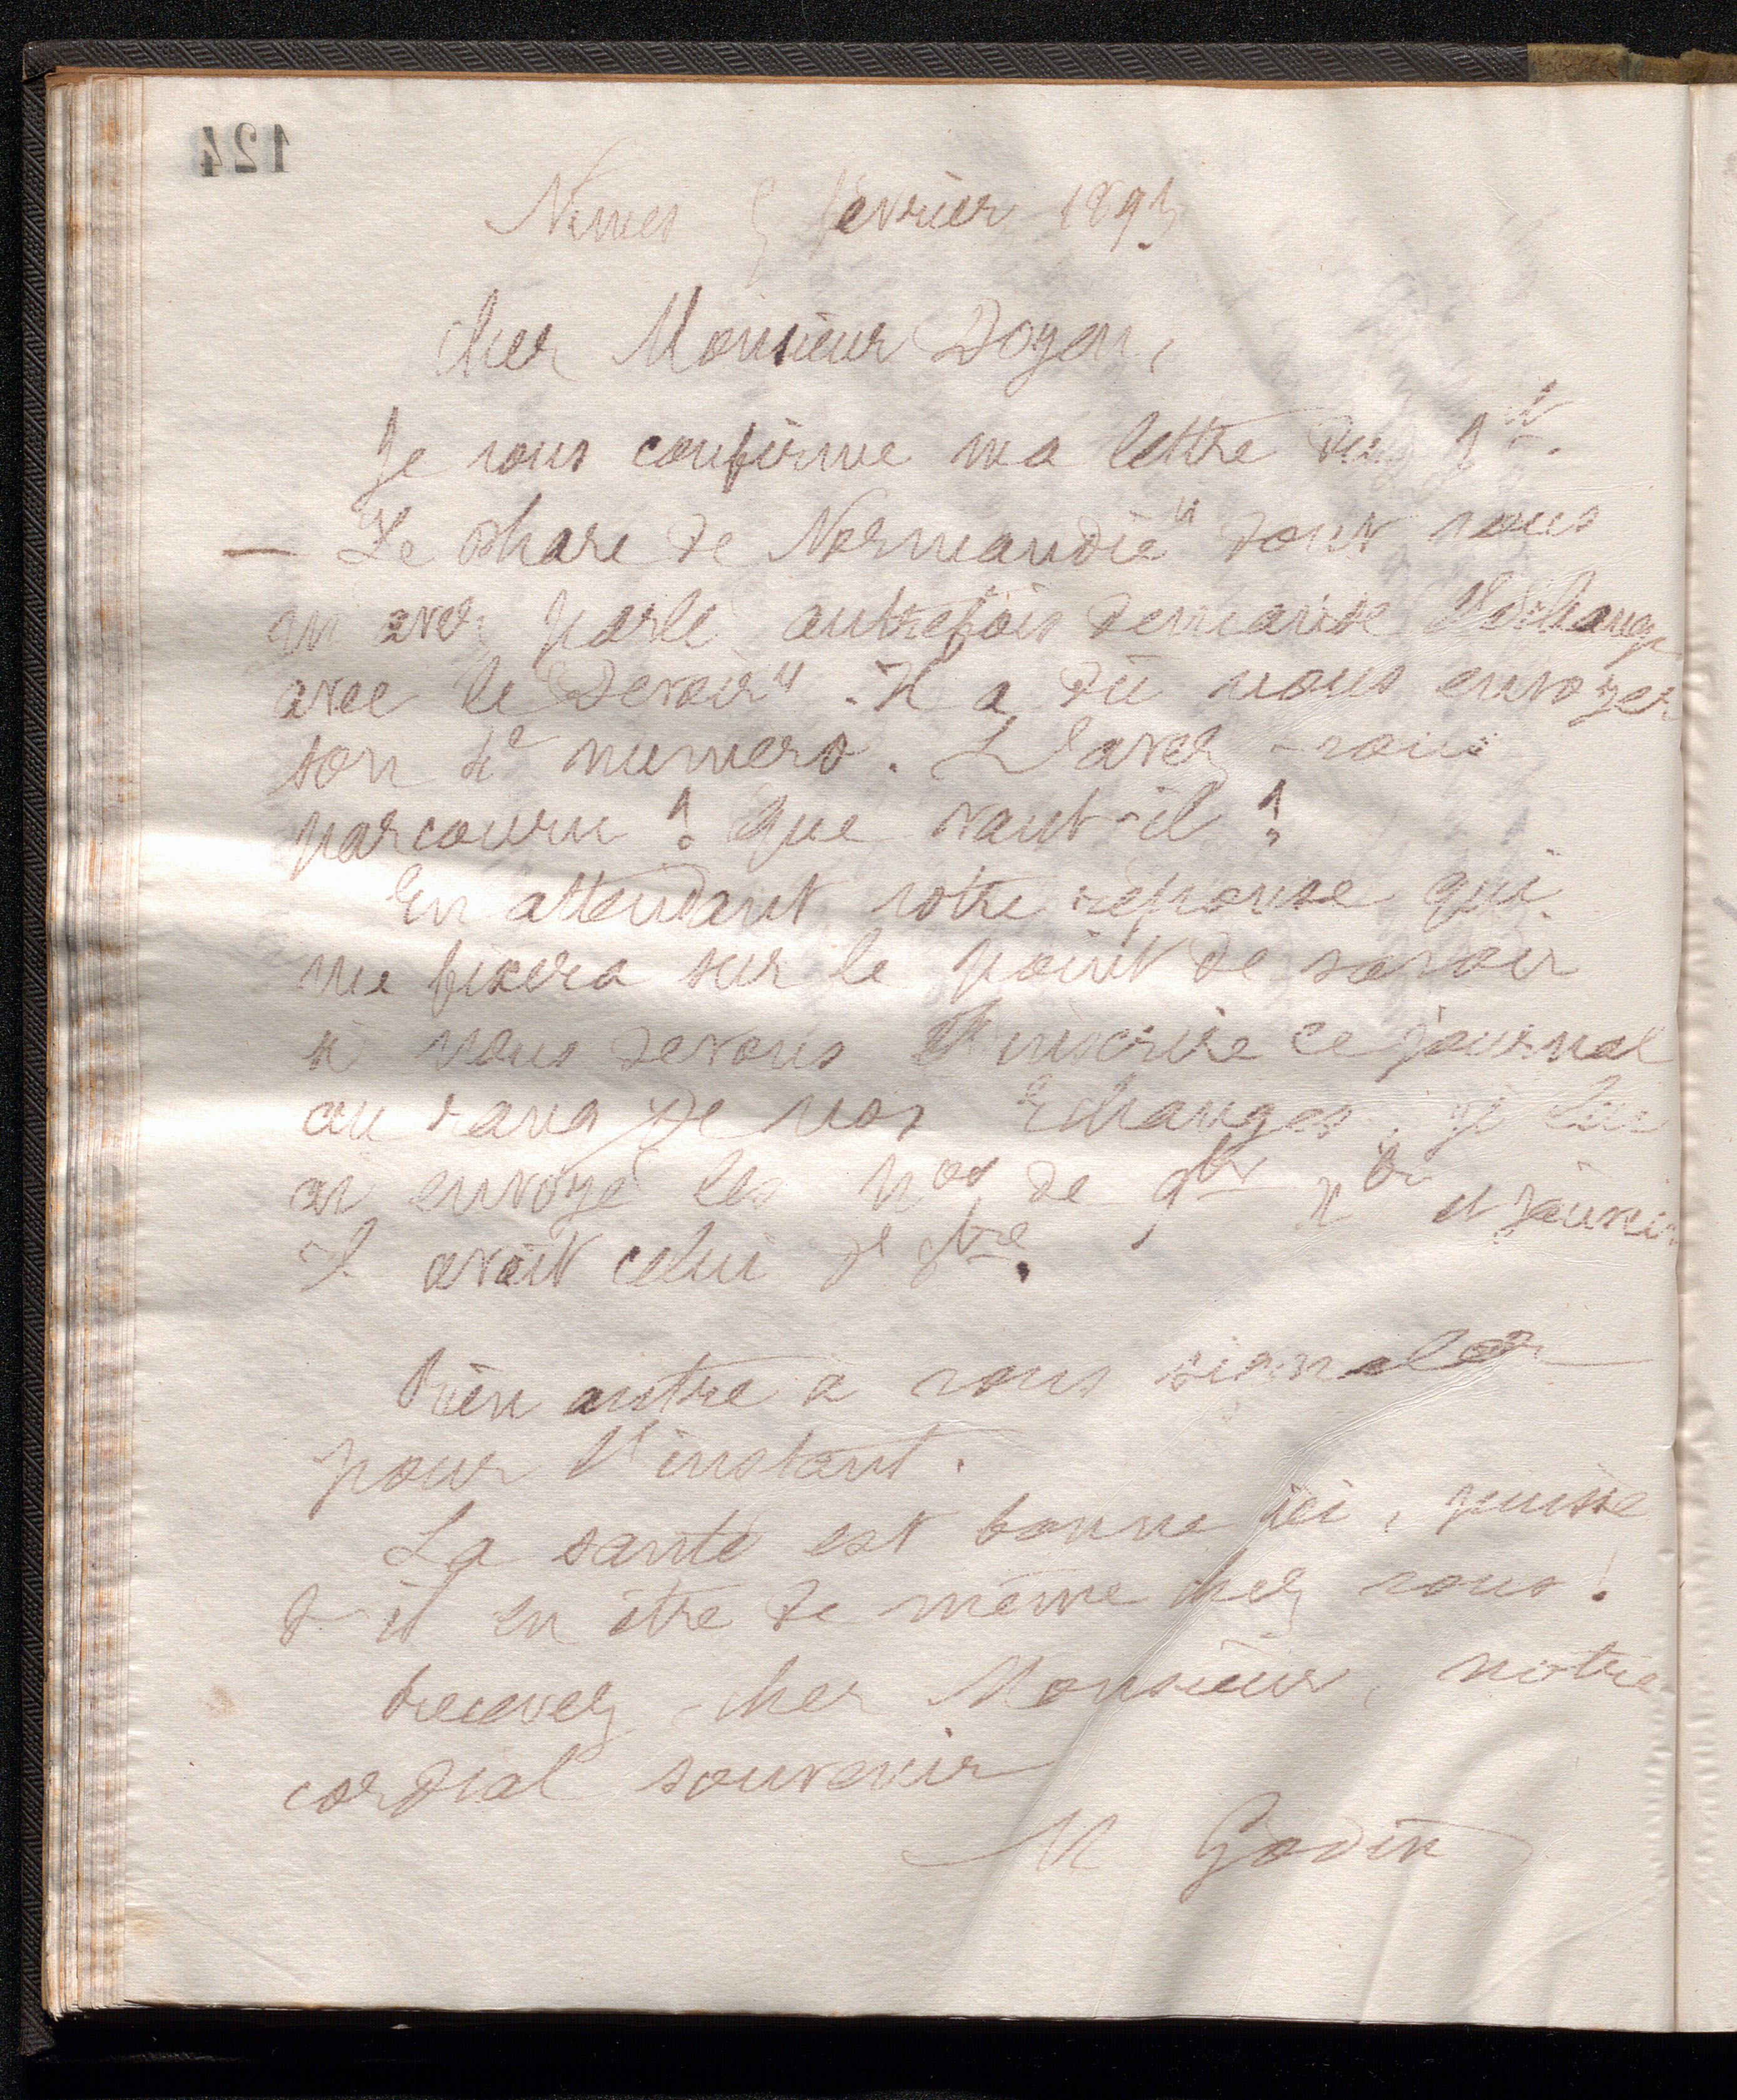 124
Nîmes 5 février 1893
Cher Monsieur Doyen,
Je vous confirme ma lettre du 1er.
— Le Phare de Normandie" dont vous
m'avez parlé autrefois demande l'échange
avec le Devoir". Il a dû vous envoyer
son 4e numéro. L'avez-vous
parcouru ? Que vaut-il ?
En attendant votre réponse qui
me fixera sur le point de savoir
si nous devons inscrire ce journal
au rang de nos Echanges, je lui
ai envoyé les Nos de 9bre Xbre et janvier
Il avait celui de 8bre.
Rien autre à vous signaler
pour l'instant.
La santé est bonne ici, puisse
t-il en être de même chez vous !
Recevez, cher Monsieur, notre
cordial souvenir
M Godin